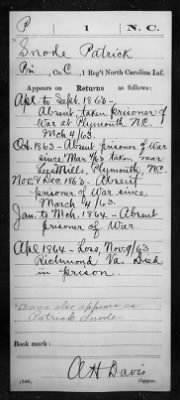 P 1 N. C.
Snode Patrick
Pvt., Co. C, 1 Reg't North Carolina Inf.
Appears on Returns as follows:
Apl. to Sept. 1863-
Absent, taken prisoner of
War at Plymouth N.C.
Mch 4/63.
Oct. 1863- Absent prisoner of War
since Mar 4/63 taken near
Mills, Plymouth, N.C.
Nov. & Dec. 1863- Absent
prisoner of War since
March 4/63.
Jan. to Mch. 1864- Absent
prisoner of War.
Apl 1864- Loss, Nov. 9/63
Richmond Va. Died
in prison.
Name also appears as
Patrick Snode.
Book mark:
A H Davis
(546) Copyist.